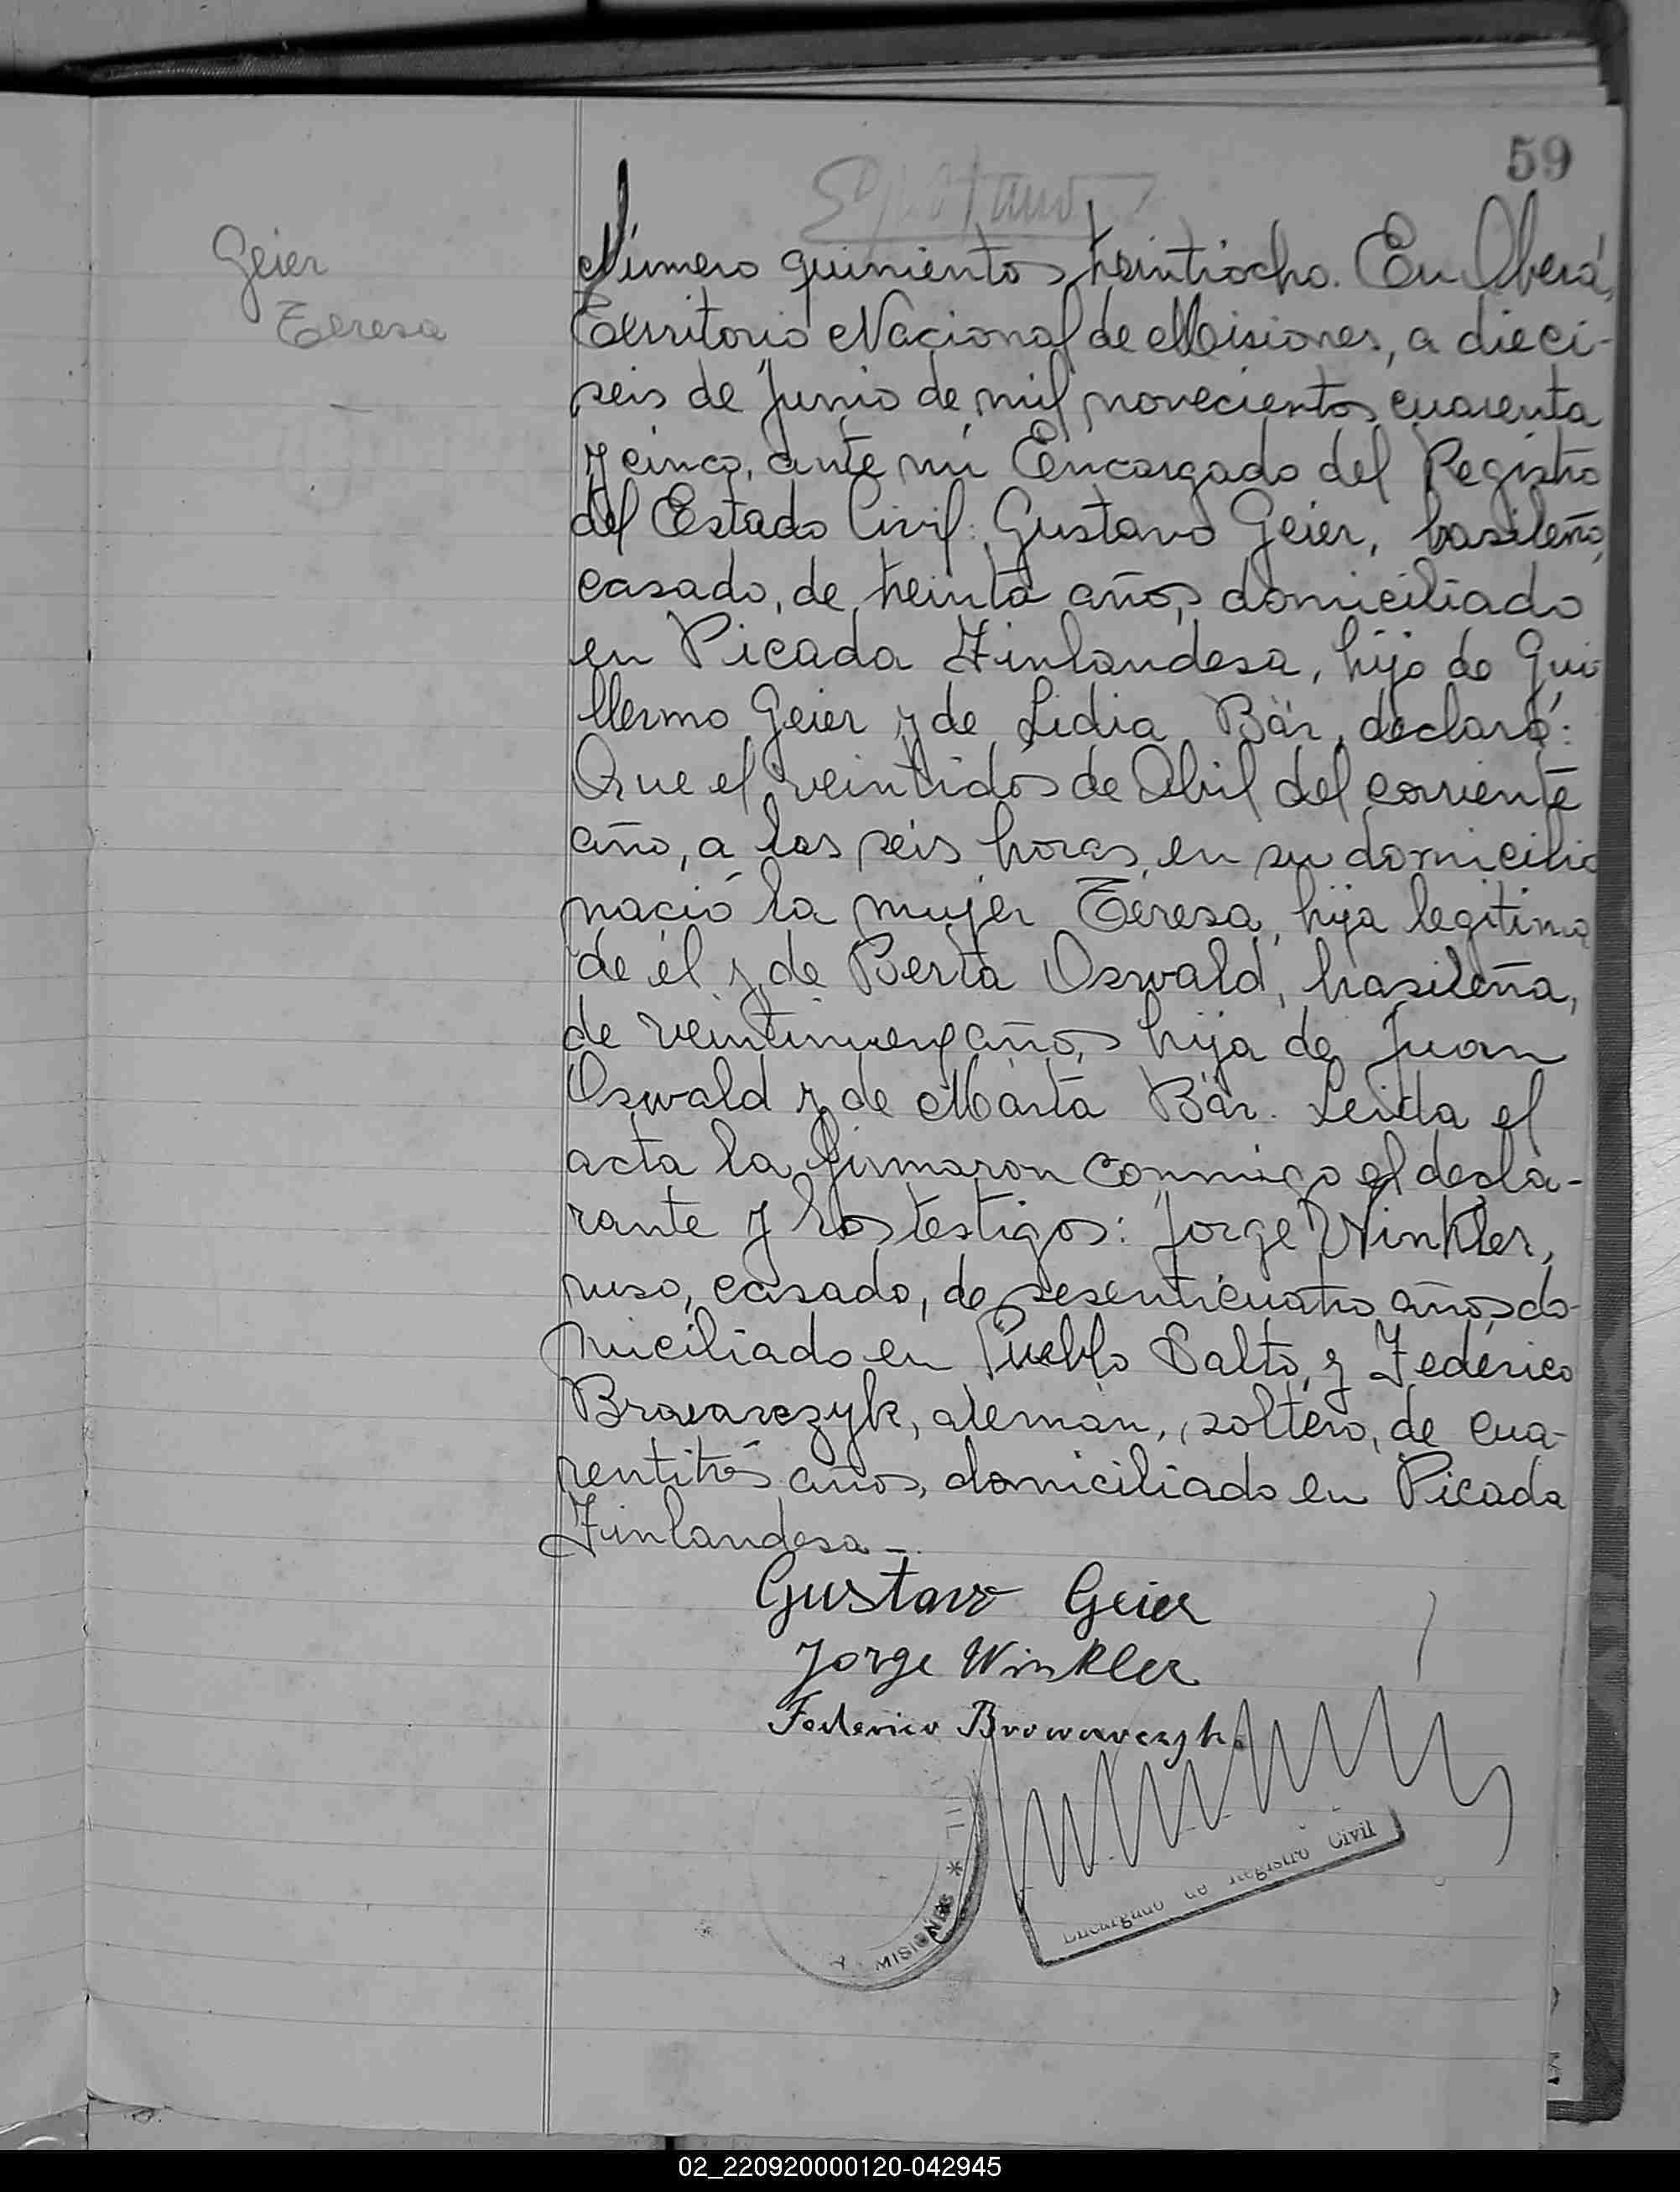 59
Geier
Teresa
Número quinientos treintiocho. En Oberá,
Territorio Nacional de Misiones, a dieci-
seis de Junio de mil novecientos cuarenta
y cinco, ante mi Encargado del Registro
del Estado Civil: Gustavo Geier, brasileño,
casado, de treinta años, domiciliado
en Picada Finlandesa, hijo de Gui
llermo Geier y de Lidia Bär, declaró:
Que el veintidos de Abril del corriente
año, a las seis horas, en su domicilio
nació la mujer Teresa, hija legitima
de él y de Berta Oswald, brasileña,
de veintinueve años, hija de Juan
Oswald y de Marta Bär. Leida el
acta la firmaron conmigo el decla-
rante y los testigos: Jorge Winkler,
ruso, casado, de sesenticuatro años, do-
miciliado en Pueblo Salto, y Federico
Browarczyk, alemán, soltero, de cua-
rentitrés años, domiciliado en Picada
Finlandesa -.
Gustavo Geier
Jorge Winkler
Federico Browarczyk.
MISIONES
Encargado de Registro Civil
02_220920000120-042945